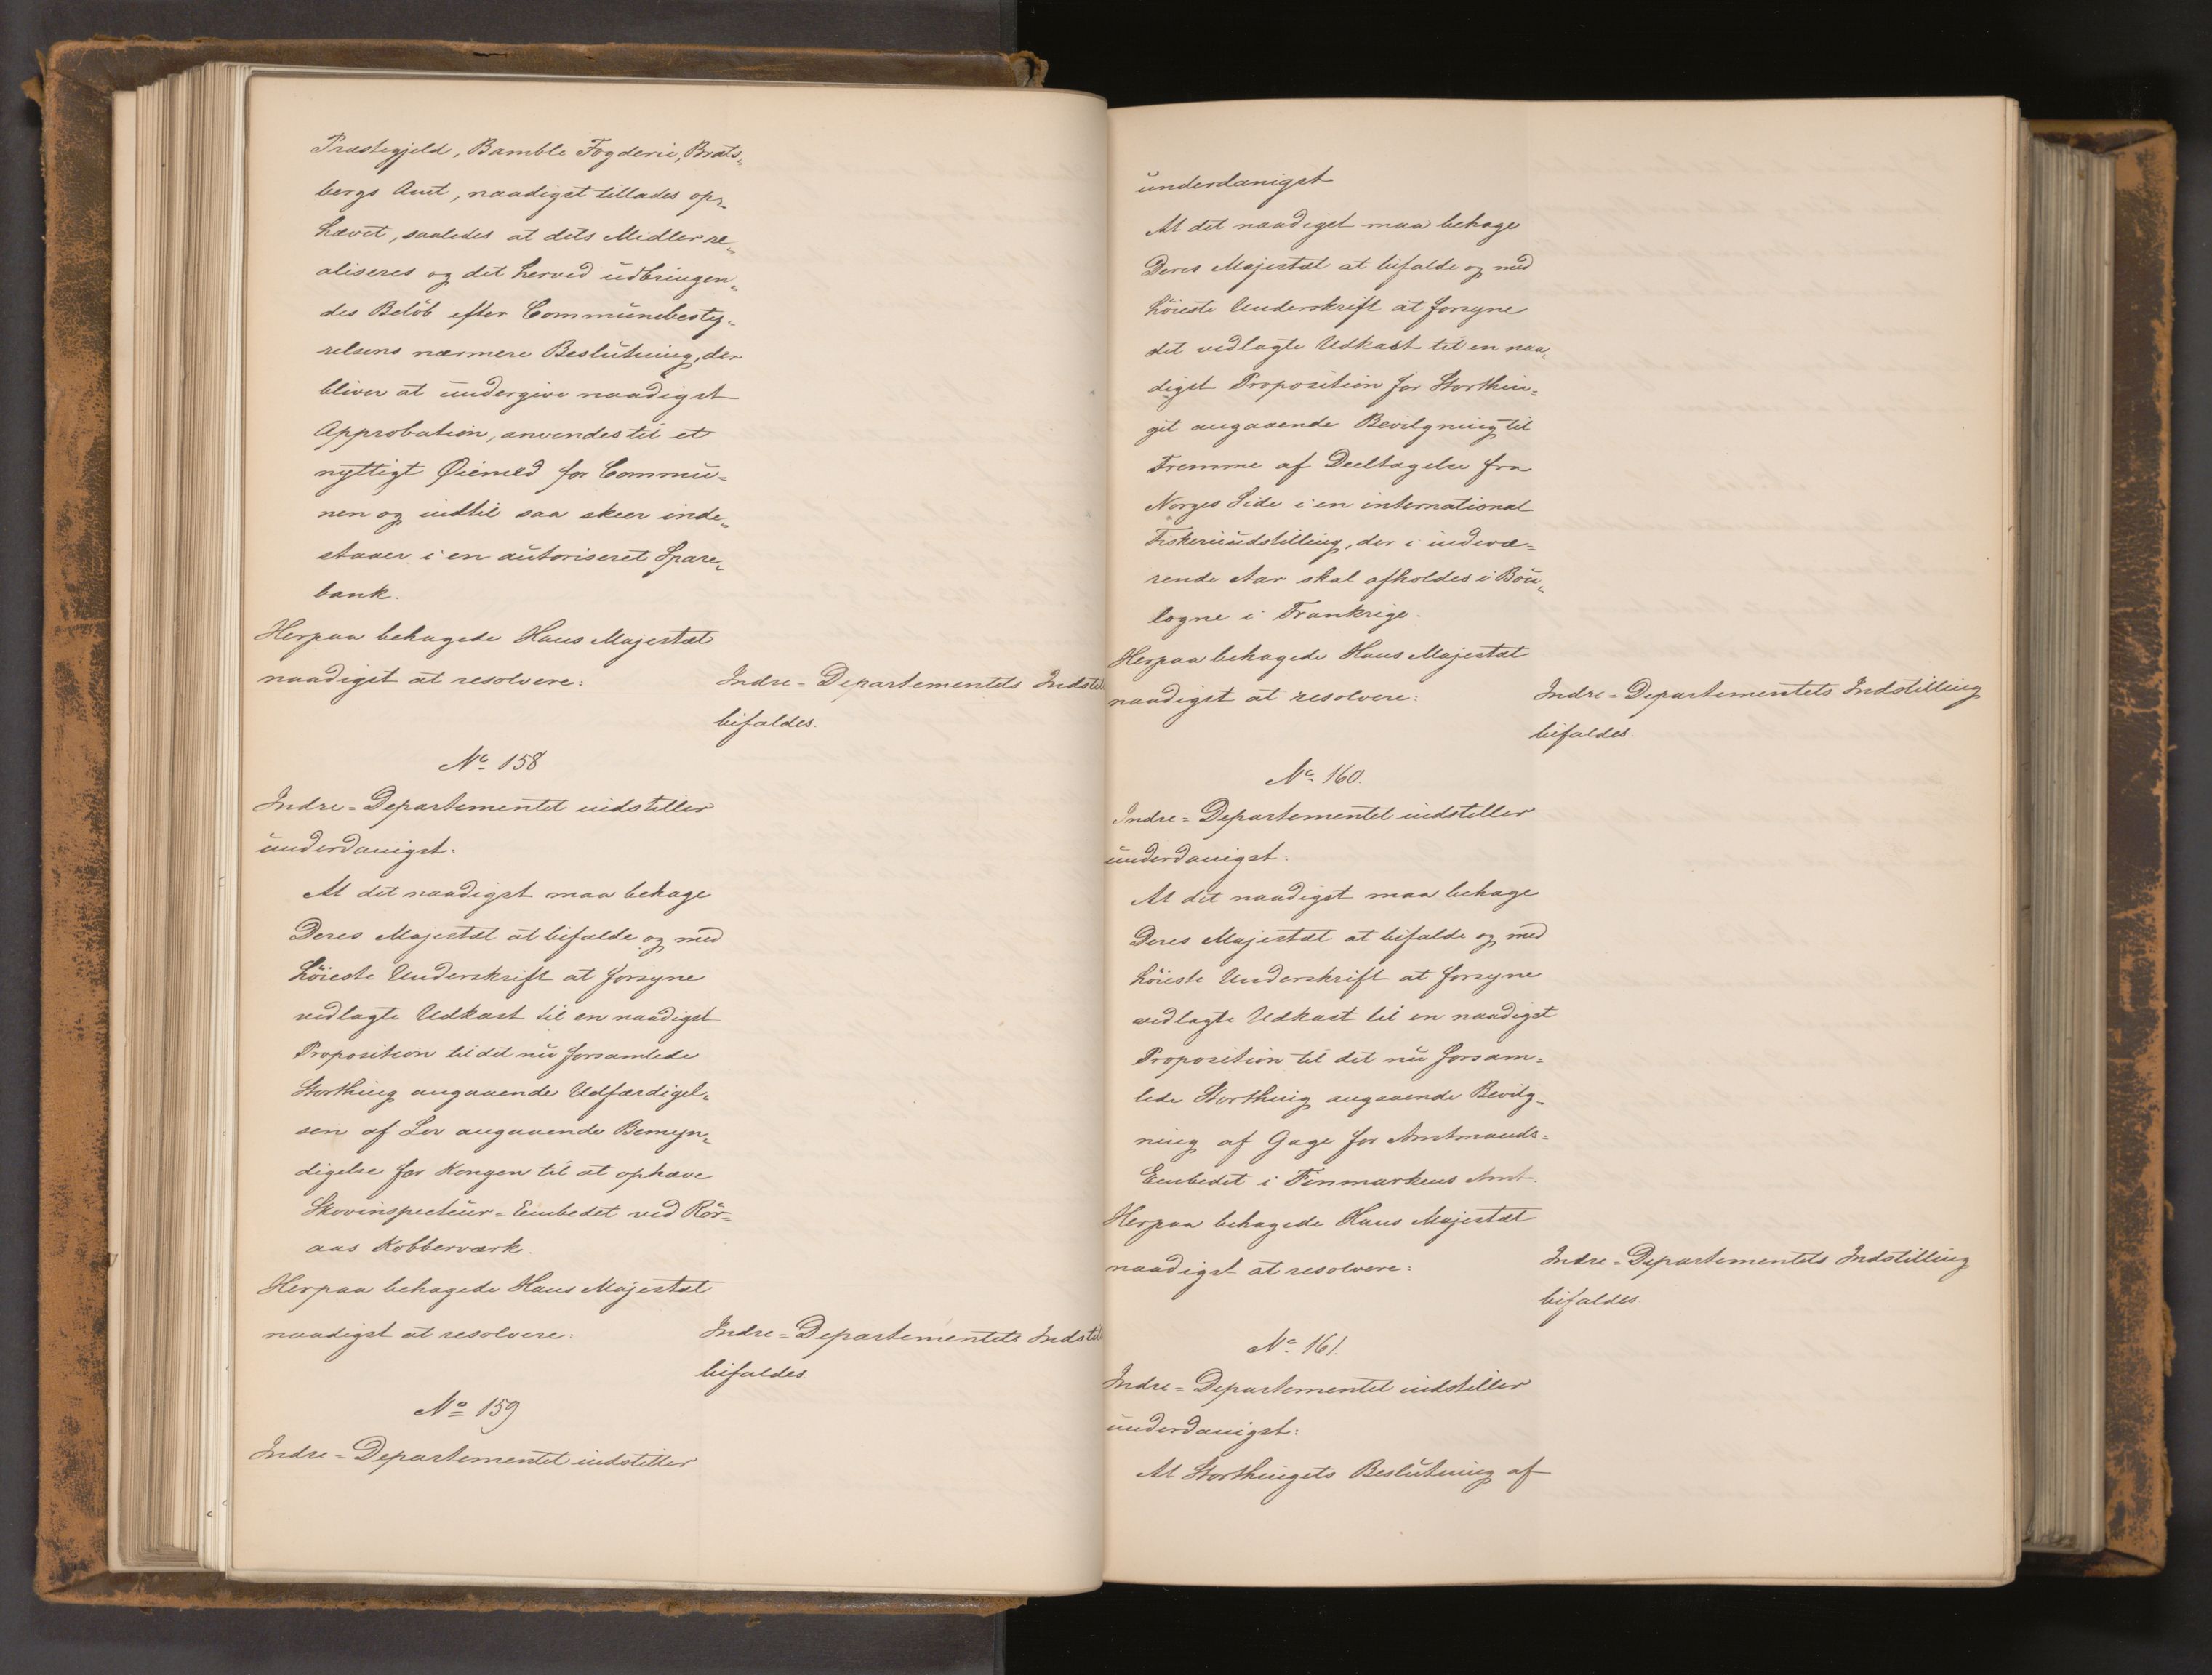 Præstegjeld, Bamble Fogderie, Brats„
bergs Amt, naadigst tillades op„
hævet, saaledes at dets Midler re„
aliseres og det herved udbringen„
des Beløb efter Communebesty„
relsens nærmere Beslutning, der
bliver at undergive naadigst
Approbation, anvendes til et
nyttigt Øiemed for Commu=
nen og indtil saa skeer inde„
staaer i en autoriseret Spare„
bank.
Herpaa behagede Hans Majestæt
naadigst at resolvere:
Indre=Departementets Indstil
bifaldes.
No 158
Indre=Departementet indstiller
underdanigst:
At det naadigst maa behage
Deres Majestæt at bifalde og med
høieste Underskrift at forsyne
vedlagte Udkast til en naadigst
Proposition til det nu forsamlede
Storthing angaaende Udfærdigel„
sen af Lov angaaende Bemyn„
digelse for Kongen til at ophæve
Skovinspecteur=Embedet ved Rör=
aas Kobberværk.
Herpaa behagede Hans Majestæt
naadigst at resolvere:
Indre=Departementets Indstil
bifaldes.
No 159
Indre=Departementet indstiller
underdanigst
At det naadigst maa behage
Deres Majestæt at bifalde og med
høieste Underskrift at forsyne
det vedlagte Udkast til en naa„
digst Proposition for Storthin=
get angaaende Bevilgning til
Fremme af Deeltagelse fra
Norges Side i en international
Fiskeriudstilling, der i indevæ=
rende Aar skal afholdes i Bou„
logne i Frankrige.
Herpaa behagede Hans Majestæt
naadigst at resolvere:
Indre=Departementets Indstilling
bifaldes.
No 160.
Indre=Departementet indstiller
underdanigst:
At det naadigst maa behage
Deres Majestæt at bifalde og med
høieste Underskrift at forsyne
vedlagte Udkast til en naadigst
Proposition til det nu forsam=
lede Storthing angaaende Bevilg=
ning af Gage for Amtmands=
Embedet i Finmarkens Amt.
Herpaa behagede Hans Majestæt
naadigst at resolvere:
Indre=Departementets Indstilling
bifaldes.
No 161.
Indre=Departementet indstiller
underdanigst:
At Storthingets Beslutning af